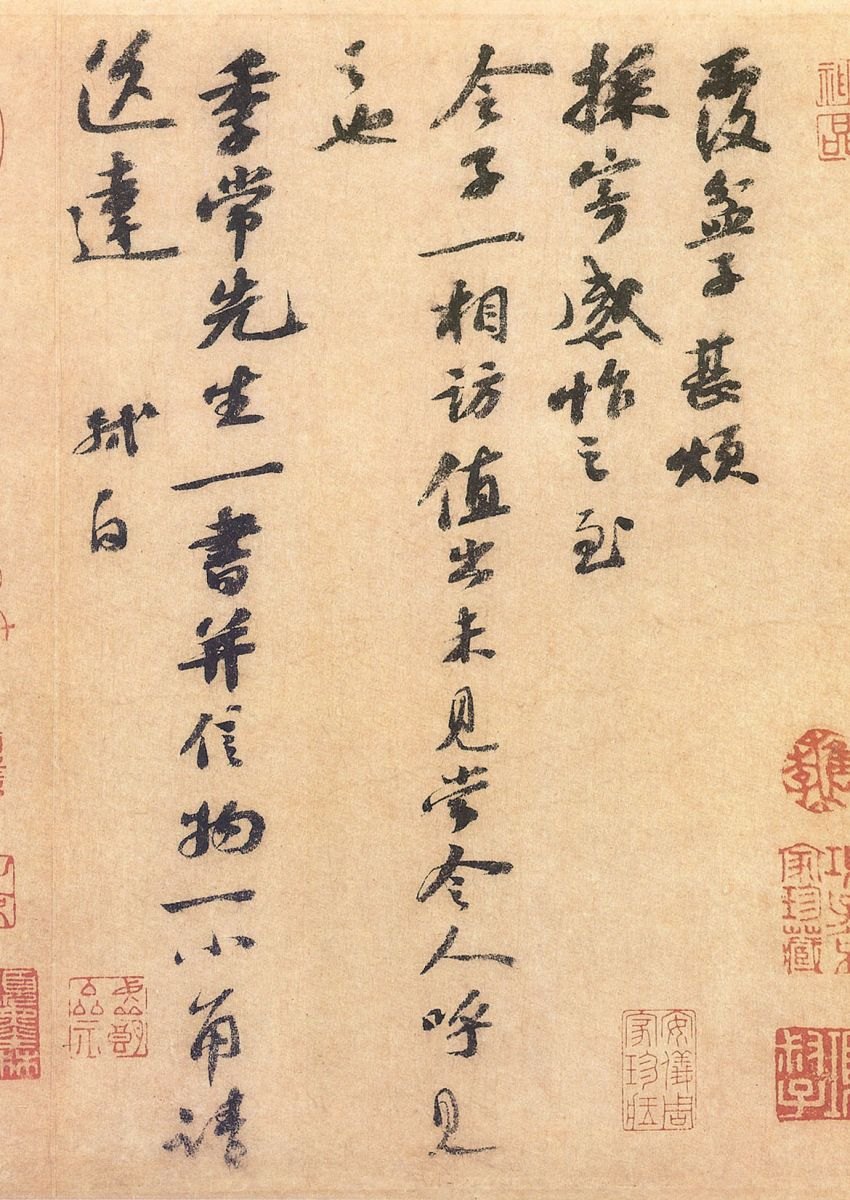 覆盆子甚煩
採寄感怍之至
令子一相訪值出未見當令人呼見
之也
季常先生一書并信物一小角請
送達　軾白
安儀周家珍藏